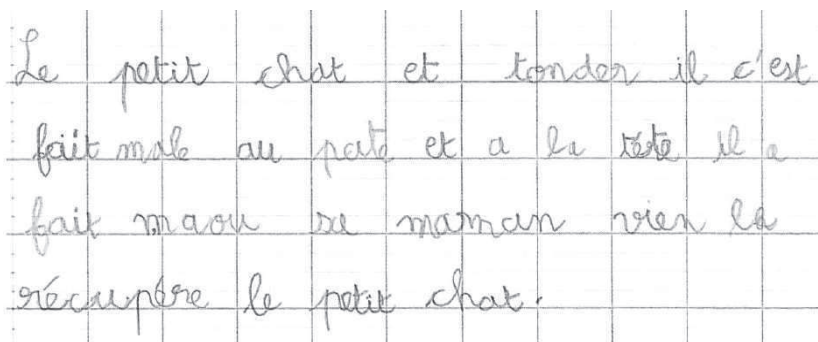 Le petit chat et tonder il c'est
fait male au paté et a la tête il a
fait maou sa maman vien la
récupère le petit chat.